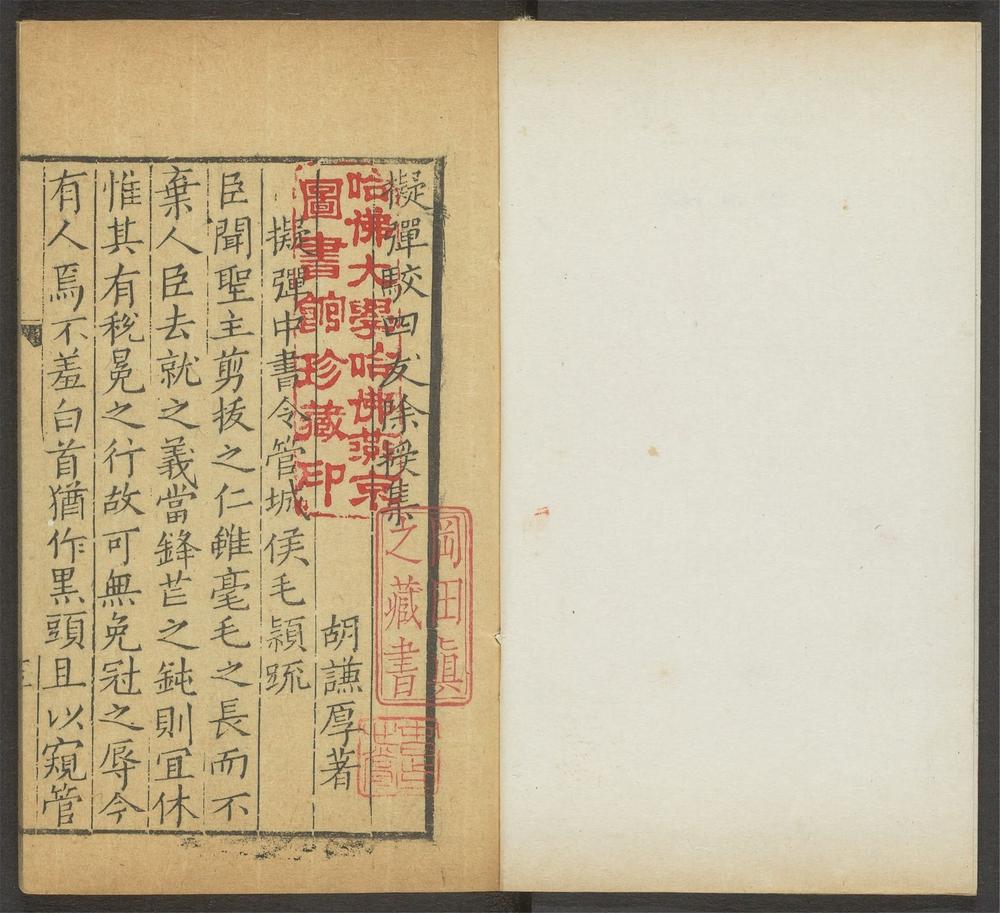 擬彈駮四友除授集
胡謙厚著
擬彈中書令管城侯毛穎疏
臣聞聖主剪拔之仁雖毫毛之長而不
棄人臣去就之義當鋒芒之鈍則宜休
惟其有稅冕之行故可無免冠之辱今
有人焉不羞白首猶作黒頭且以窺管
哈佛大學哈佛燕京
圖書館珍藏印
岡田真
之藏書